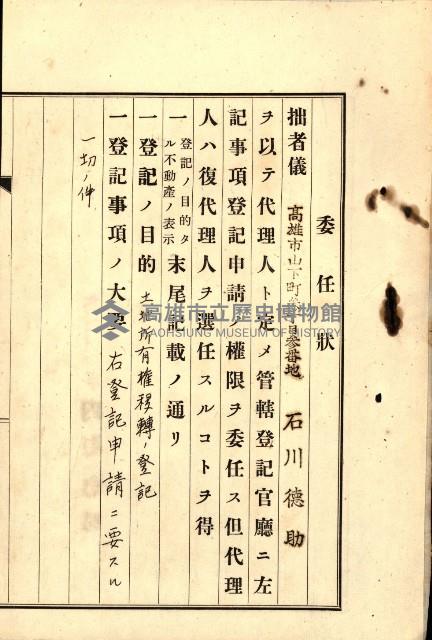 委任狀
拙者儀 高雄市山下町 目參番地 石川德助
ヲ以テ代理人ト定メ管轄登記官廳ニ左
記事項登記申請ノ權限ヲ委任ス但代理
人ハ復代理人ヲ選任スルコトヲ得
一 登記ノ目的タル不動産ノ表示 末尾記載ノ通リ
一登記ノ目的 土地所有權移轉ノ登記
一登記事項ノ大要 右登記申請ニ要スル
一切ノ件
高雄市立歷史博物館
KAOHSIUNG MUSEUM OF HISTORY